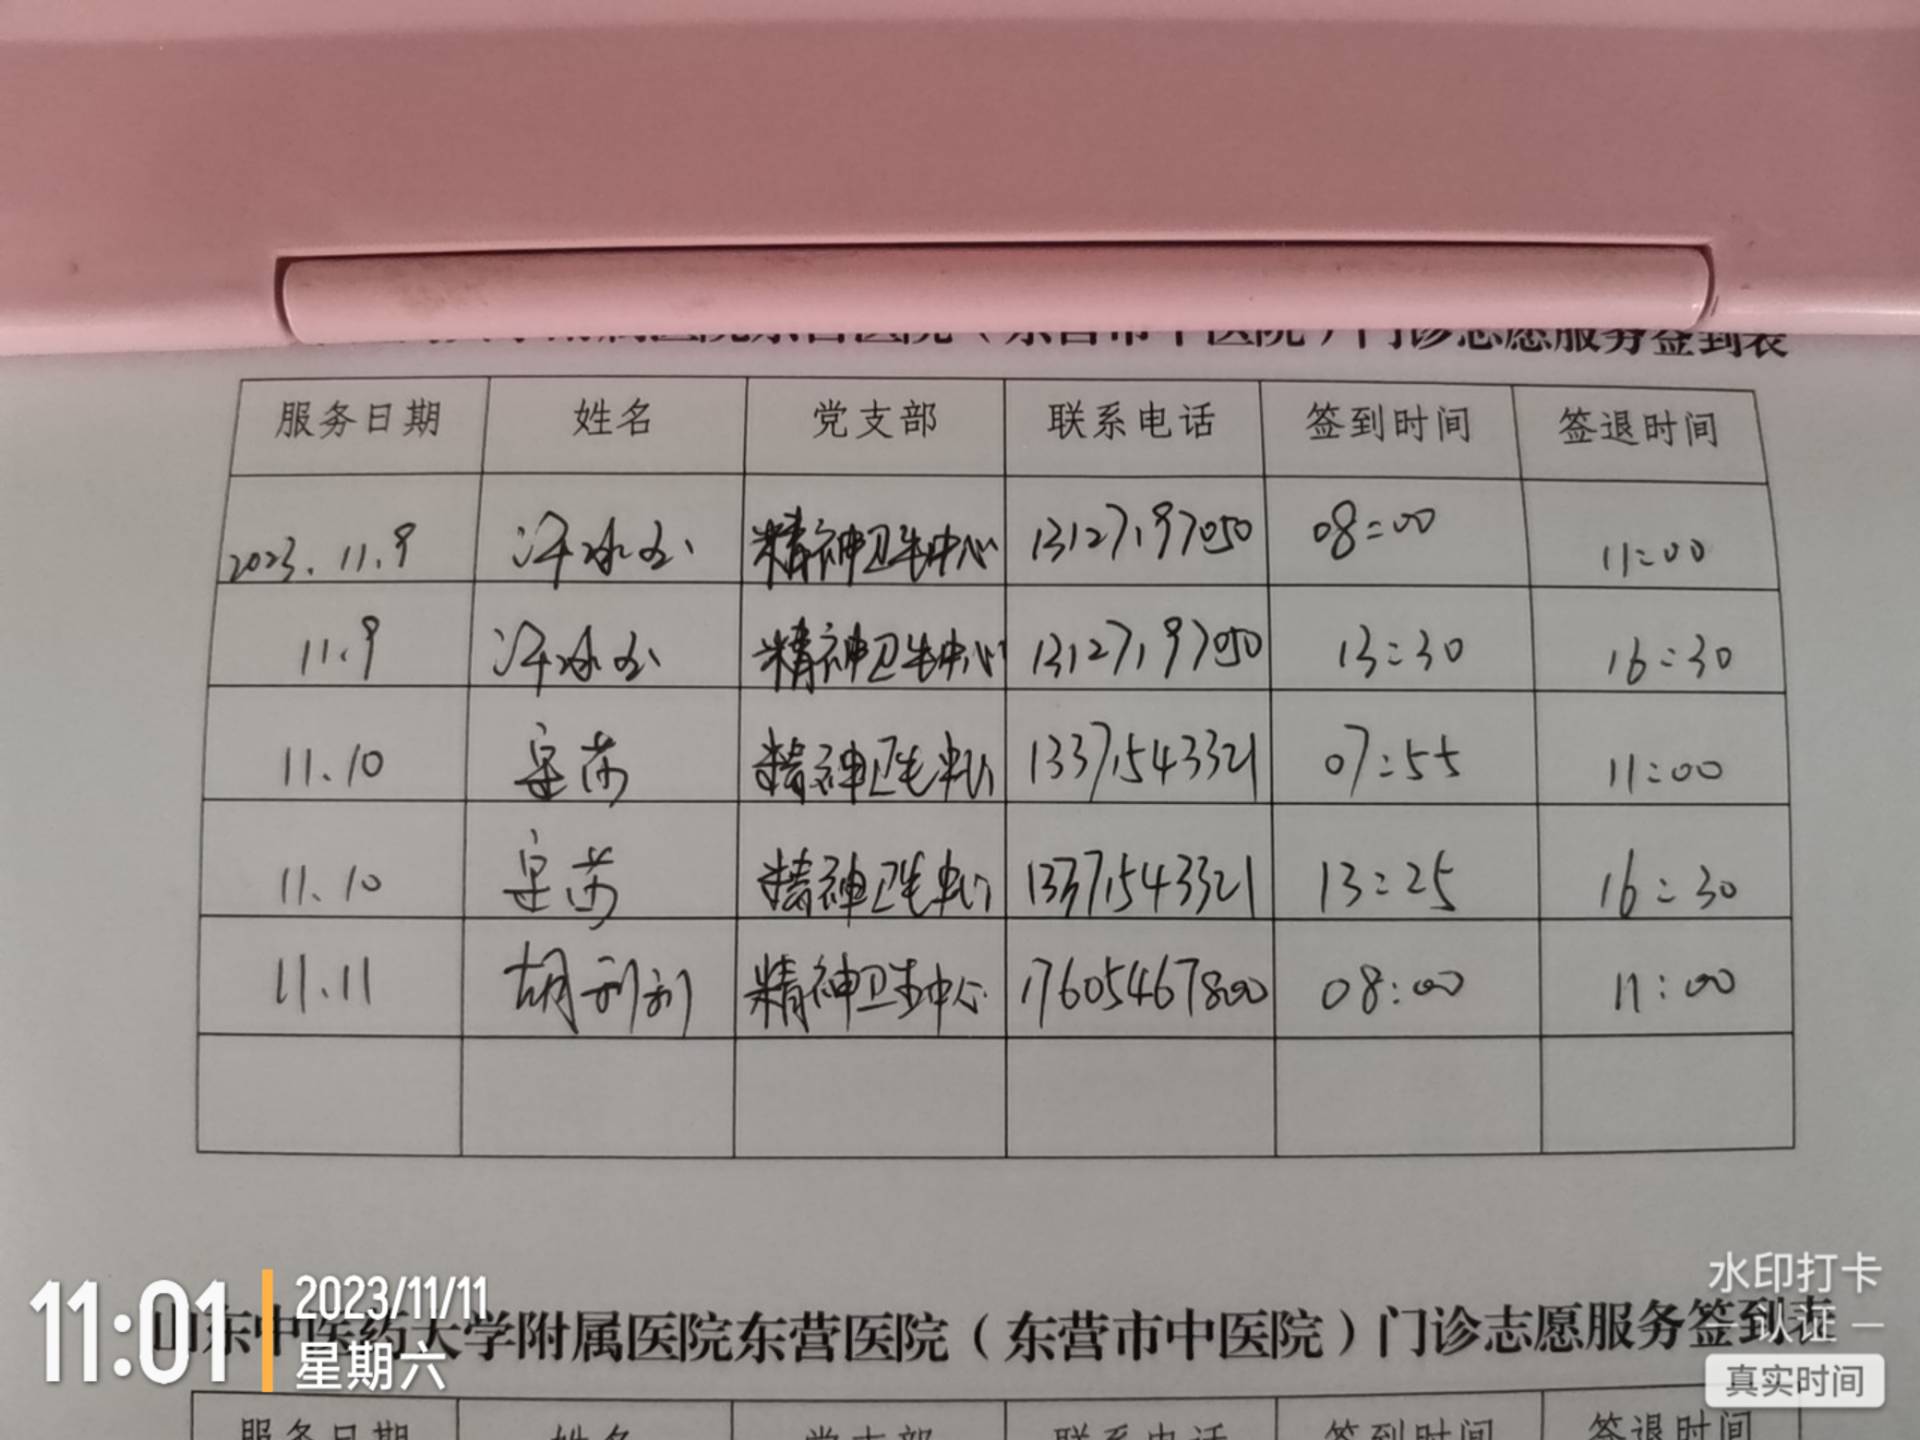 附属医院东营医院（东营市中医院）门诊志愿服务签到表
服务日期 姓名 党支部 联系电话 签到时间 签退时间
2023.11.9 精神卫生中心 13127197050 08:00 11:00
11.9 精神卫生中心 13127197050 13:30 16:30
11.10 精神卫生中心 13371543321 07:55 11:00
11.10 精神卫生中心 13371543321 13:25 16:30
11.11 胡利利 精神卫生中心 17605467800 08:00 11:00
水印打卡
11:01 2023/11/11
认证
山东中医药大学附属医院东营医院（东营市中医院）门诊志愿服务签到表
星期六
真实时间
服务日期 姓名 党支部 联系电话 签到时间 签退时间